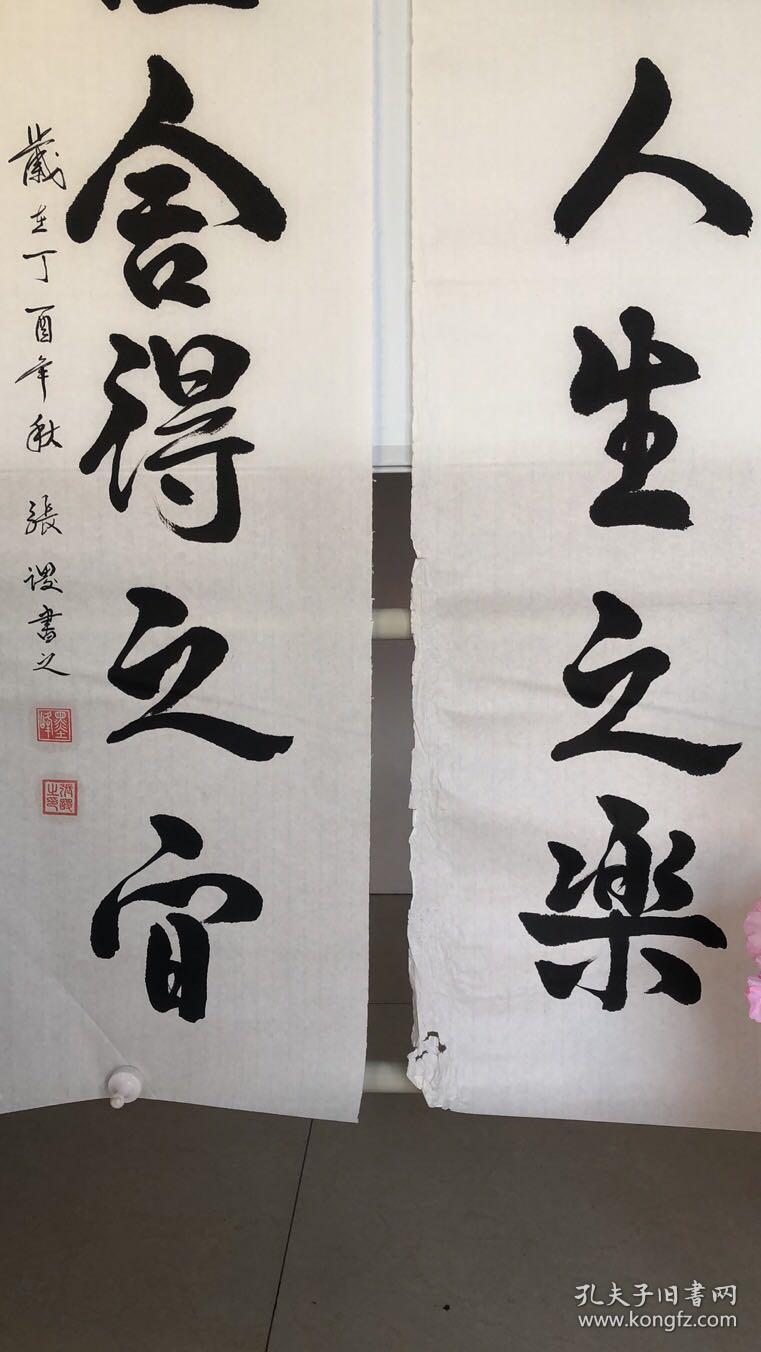 人生之樂
舍得之間
歲在丁酉年秋 張謖書之
墨峰
孔夫子旧书网
www.kongfz.com